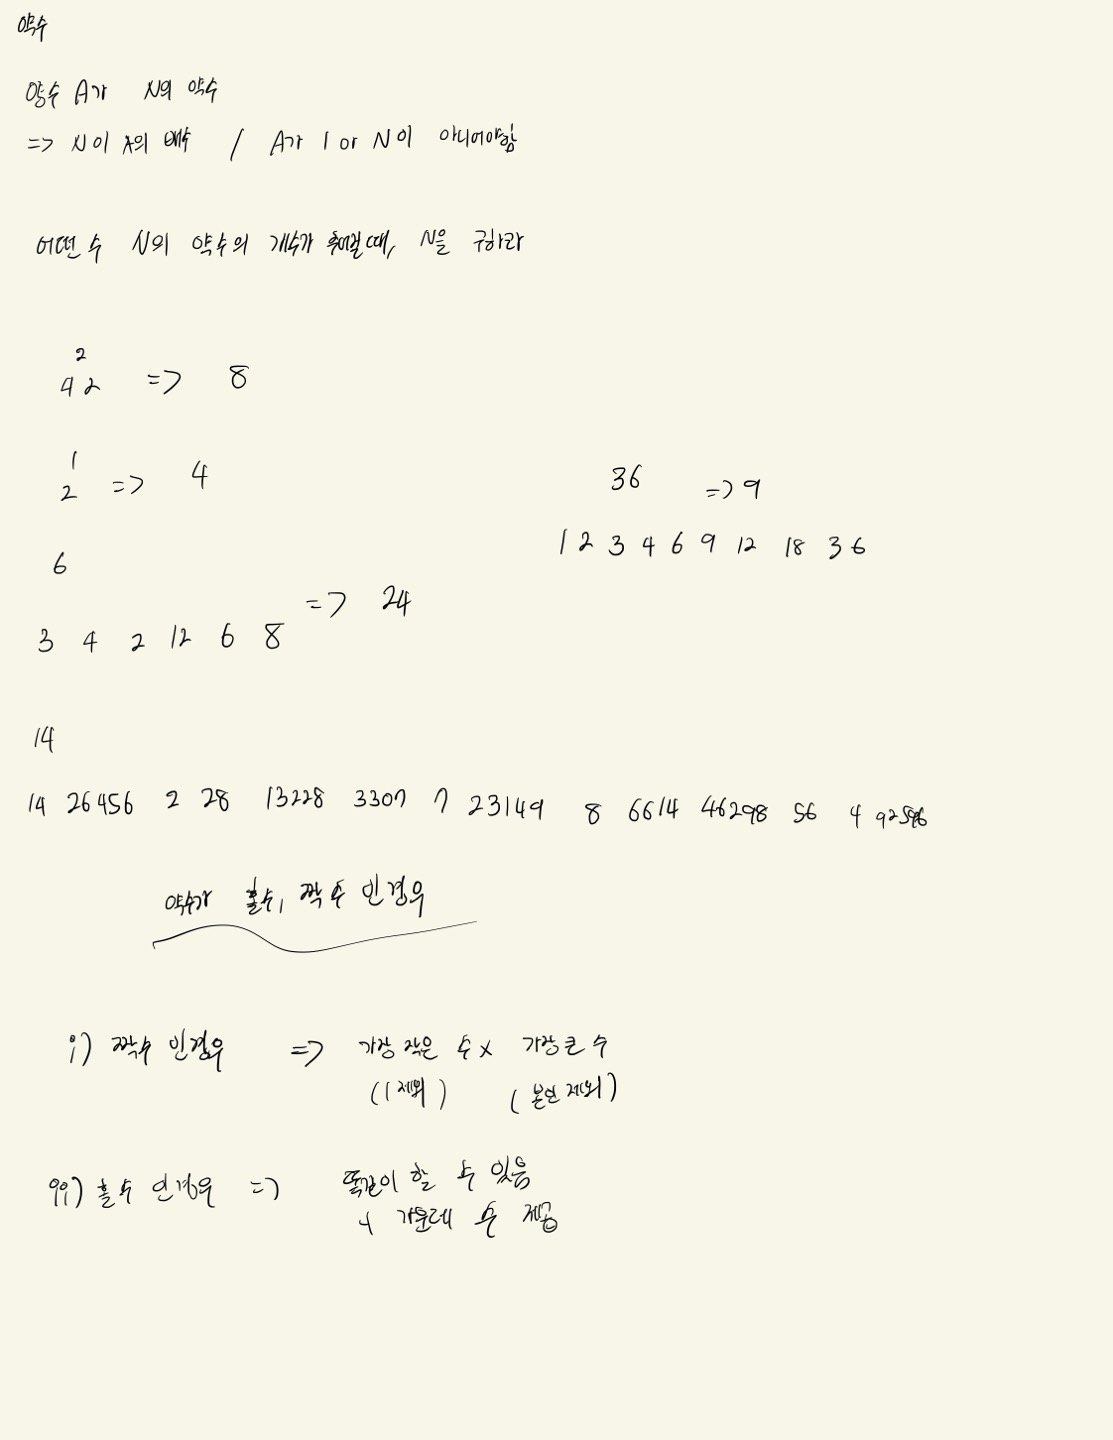 약수
양수 A가 N의 약수
=> N이 A의 배수 / A가 1 or N이 아니어야함
어떤 수 N의 약수의 개수가 주어질때, N을 구하라
2
4 2 => 8
1
2 => 4
36 => 9
1 2 3 4 6 9 12 18 36
6
=> 24
3 4 2 12 6 8
14
14 26456 2 28 13228 3307 7 23149 8 6614 46298 56 4 92596
약수가 홀수, 짝수 인경우
i) 짝수 인경우 => 가장 작은 수 x 가장 큰 수
(1 제외) (본인 제외)
ii) 홀수 인경우 => 똑같이 할 수 있음
가운데 수 제곱